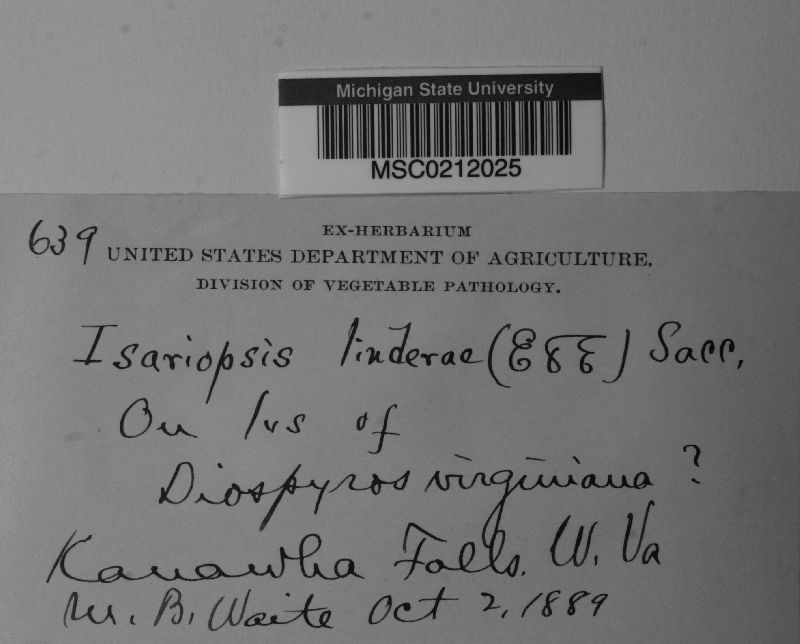 Michigan State University
MSC0212025
639
EX-HERBARIUM
UNITED STATES DEPARTMENT OF AGRICULTURE.
DIVISION OF VEGETABLE PATHOLOGY.
Isariopsis linderae (E & E) Sacc,
On lvs of
Diospyros virginiana ?
Kanawha Falls. W. Va
M. B. Waite Oct 2, 1889